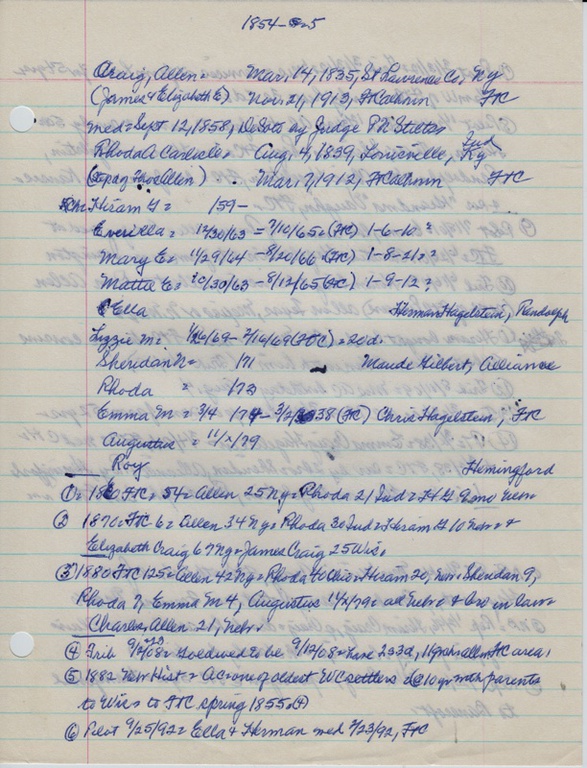 1854-5
Craig, Allen = Mar, 14, 1835, St Lawrence Co, Ny
(James & Elizabeth E) Nov 21, 1913, FtCalhoun FTC
med = Sept 12, 1858, DeSoto by Judge
Rhoda A Carlisle = Aug, 4, 1839, Ind Ky
Mar, 7, 1912, FtCalhoun FTC
Hiram G = 159-
Everilla = 12/30/63 = 7/10/65 = (FTC) 1-6-10 ?
Mary E = 1/29/64 - 8/20/66 (FTC) 1-8-21 = ?
Matta E = 10/30/63 - 8/12/65 (FTC) 1-9-12 ?
Ella Herman Hagelstein, Randolph
Lizzie M = 1/26/69 - 2/16/69 (FTC) = 20d.
Sheridan N = 171 Maude Hilbert, Alliance
Rhoda = 173
Emma M = 3/4 174 - 38 (FC) Chris Hagelstein, FTC
Augustus = 11/x/79
Roy Hemingford
① = 1860 FTC = 54 = Allen 25 Ny = Rhoda 21 Ind = H G 9mo Nebr
② 1870 = FTC 6 = Allen 34 Ny = Rhoda 30 Ind = Hiram G 10 Nebr = &
Elizabeth Craig 67 Ny = James Craig 25 Wis.
③ 1880 FTC 125 = Allen 42 Ny = Rhoda 40 Ohio = Hiram 20, Nev = Sheridan 9,
Rhoda 7, Emma M 4, Augustus 11/x/79 = all Nebr & bro in law =
Charles Allen 21, Nebr
④ Trib = Golden Wed to be 9/12/08 = have 233d, 11 gch all in FC area
⑤ 1882 Nebr Hist = AC one of oldest WC settlers @10 yr with parents
to Wis = to FTC spring 1855
⑥ Pilot 9/25/92 = Ella & Herman med 9/23/92, FTC